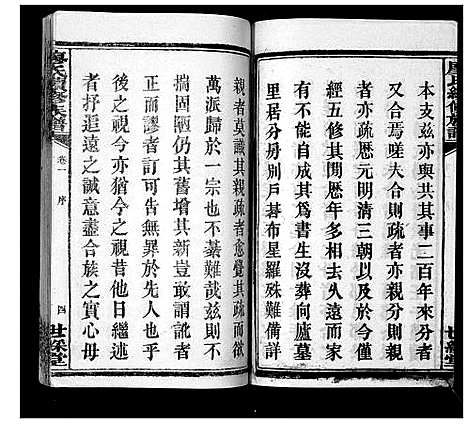 本支茲亦與共其事二百年來分者
合焉嗟夫合則疏者亦親分則親
者亦疏歷元明清三朝以迄于今
經五省其閱歷年亦遠而家
有不能自成其爲書生沒葬向廬墓
里居分明戶碁布星羅殊難備詳
親者莫識其親疏者愈覺其疏而欲
萬派歸於一宗也不綦難哉茲則不
揣固陋仍其舊增其新豈敢謂訛者
正而謬者訂無罪於先人也乎亦曰
後之視今亦猶今之視昔他日繼述
者抒追遠之誠意盡合族之實心毋
廖氏續修族譜
卷一
序
四
世綵堂